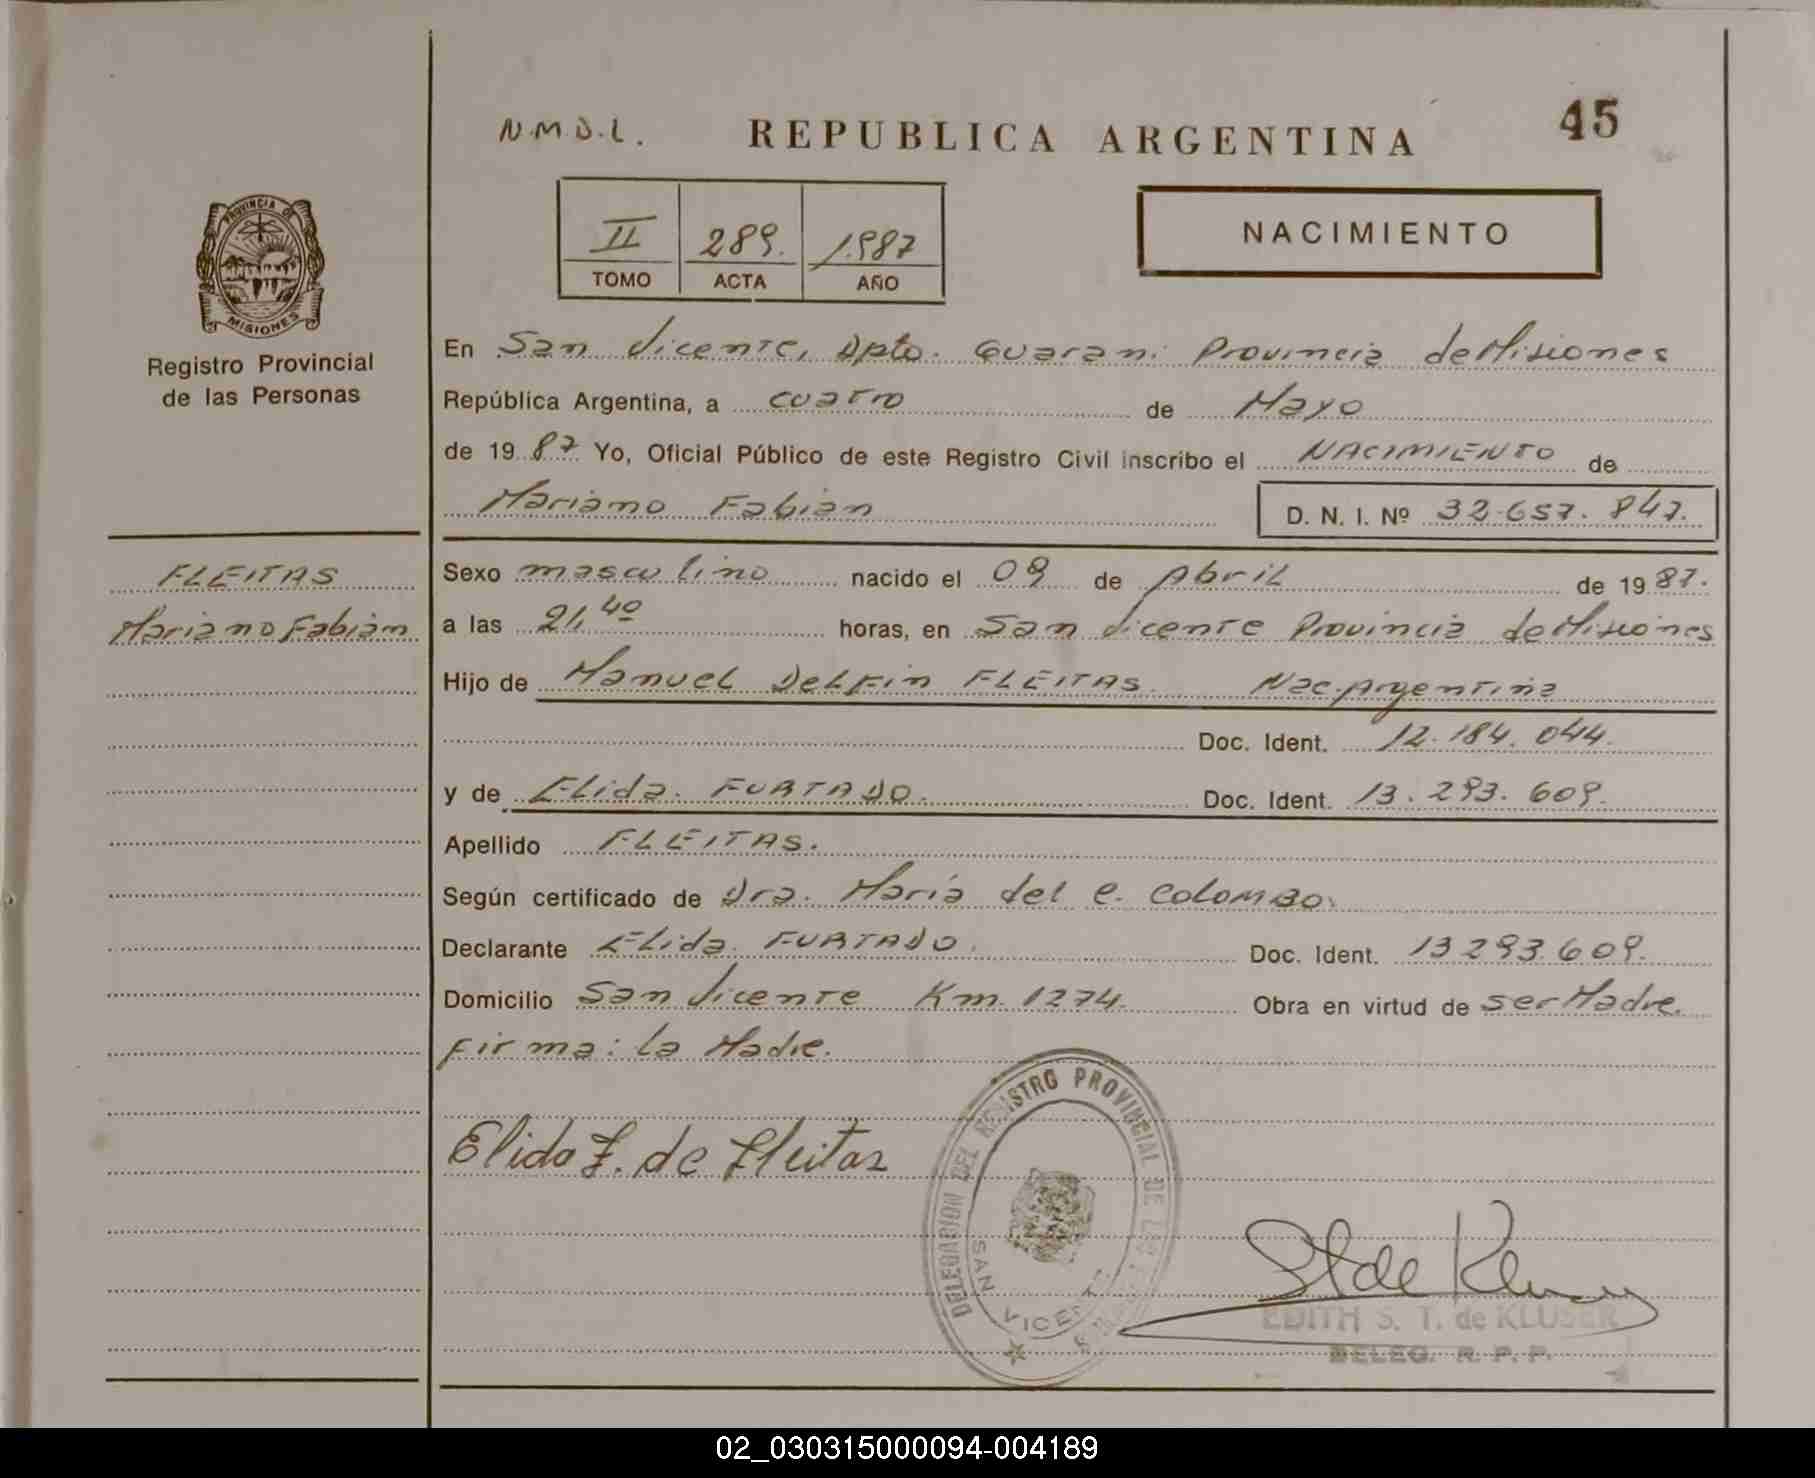 N.M.D.L.
REPUBLICA ARGENTINA
45
II 289. 1987
TOMO ACTA AÑO
NACIMIENTO
PROVINCIA DE
MISIONES
Registro Provincial
de las Personas
FLEITAS
Mariano Fabian
En San Vicente, Dpto. Guarani Provincia de Misiones
República Argentina, a cuatro de Mayo
de 19 87 Yo, Oficial Público de este Registro Civil inscribo el NACIMIENTO de
Mariano Fabian D. N. I. Nº 32.657.847.
Sexo masculino nacido el 09 de Abril de 19 87.
a las 21,40 horas, en San Vicente Provincia de Misiones
Hijo de Manuel Delfin FLEITAS. Nac. Argentina
Doc. Ident. 12.184.044.
y de Elida. FURTADO. Doc. Ident. 13.293.609.
Apellido FLEITAS.
Según certificado de Dra. Maria del C. COLOMBO.
Declarante Elida. FURTADO. Doc. Ident. 13.293.609.
Domicilio San Vicente Km. 1274. Obra en virtud de ser Madre.
firma: la Madre.
Elida F. de Fleitas
DELEGACION DEL REGISTRO PROVINCIAL DE LAS
SAN VICENTE
EDITH S. T. de KLUSER
DELEG. R. P. P.
02_030315000094-004189